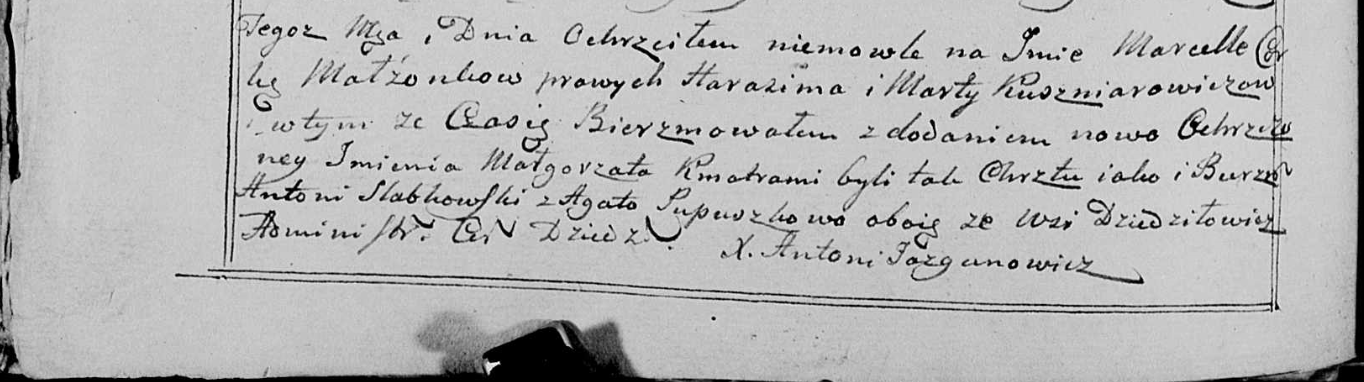 Tegoz Mca i Dnia Ochrzciłem niemowle na Imie Marcelle Cor
kę Małżonkow prawych Harasima i Marty Kuszniarowiczow
i wtym ze Czasię Bierzmowałem z dodaniem nowo Ochrzczo
ney Imienia Małgorzata Kmotrami byli tak Chrztu iako i Bierzm
Antoni Słabkowski z Agato Pupuszkowo oboię ze wsi Dziedziłowicz
Administr. Cer Dziedz. X. Antoni Jazgunowicz